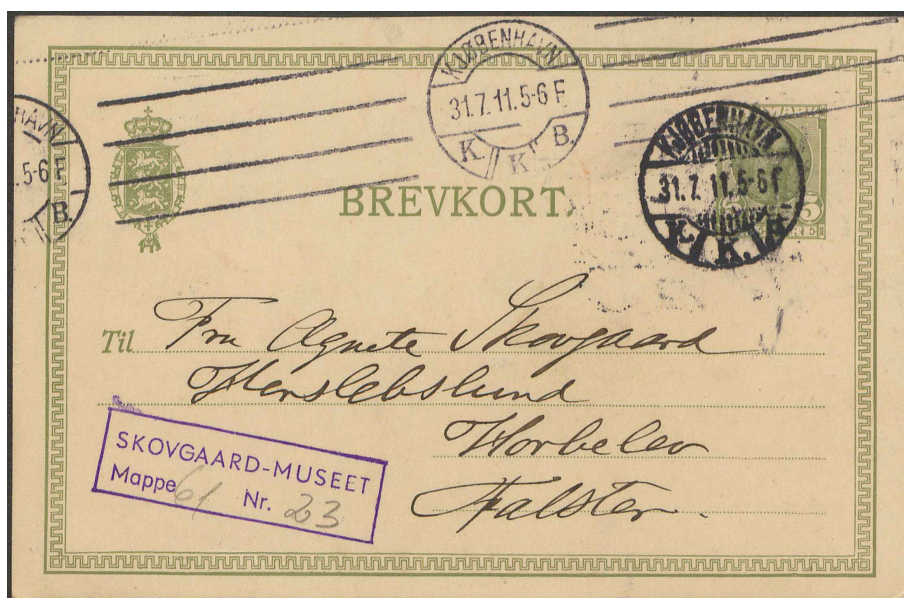 KJØBENHAVN
31.7.11.5-6 F
K. K. B.
HAVN
.5-6 F
B.
KJØBENHAVN
31.7.11.5-6 F
K. K. 1A
MARK
5
BREVKORT.
Til Fru Agnete Skovgaard
Henslebslund
Horbelev
Falster.
SKOVGAARD-MUSEET
Mappe 61 Nr. 23